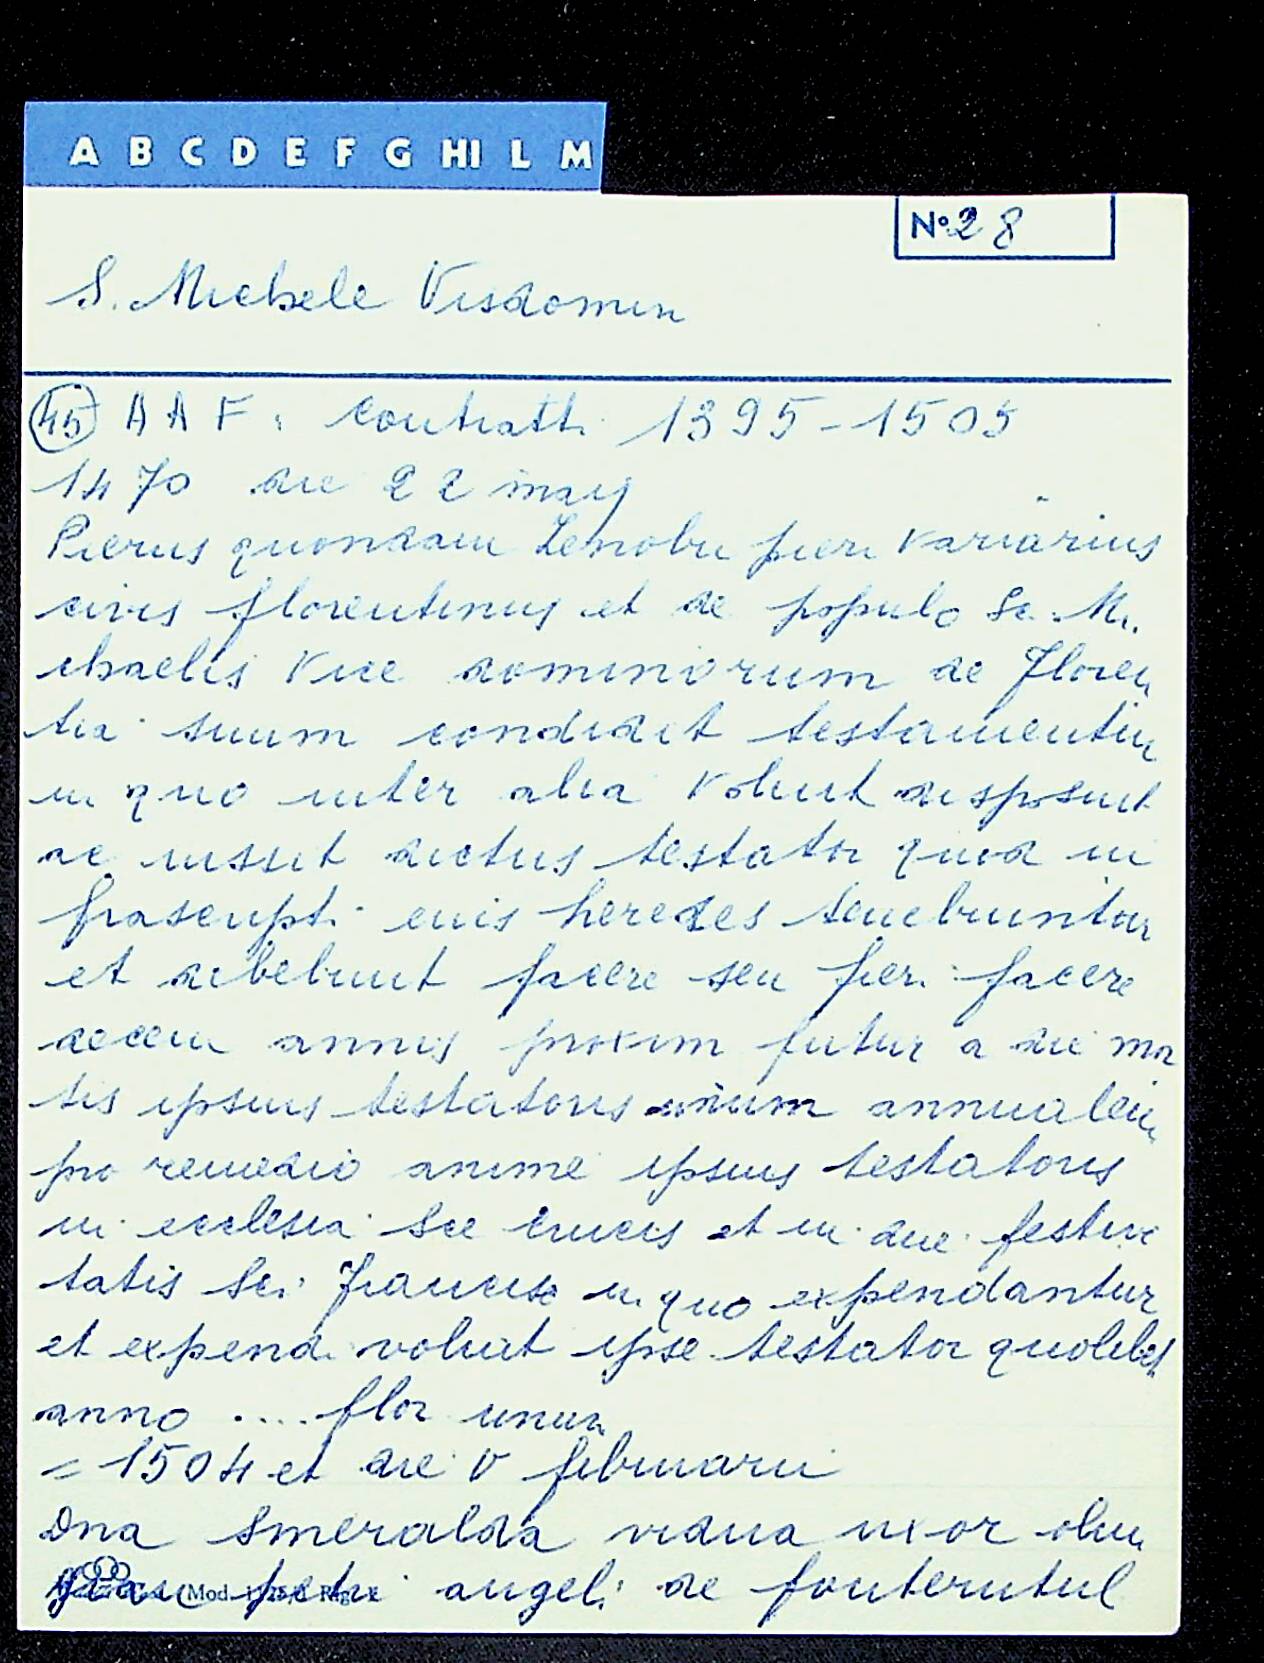 A B C D E F G HI L M
No 28
S. Michele Visdomin
45 A A F. contratti 1395-1505
1470 die 22 maij
Pierus quondam Zenobii pieri variarius
civis florentinus et de populo Sci Mi
chaelis Vice dominorum de Floren
tia suum condidit testamentum
in quo inter alia voluit disposuit
ac iussit dictus testator quod in
frascripti eius heredes tenebuntur
et debebunt facere seu fieri facere
decem annis proxim futur a die mor
tis ipsius testatoris unum annualem
pro remedio anime ipsius testatoris
in ecclesia Sce Crucis et in die festivi
tatis Sci Francisc in quo expendantur
et expendi voluit ipse testator quolibet
anno .... flor unum
= 1504 et die V februarii
Dna Smeralda vidua uxor olim
petri angeli de fonterutul